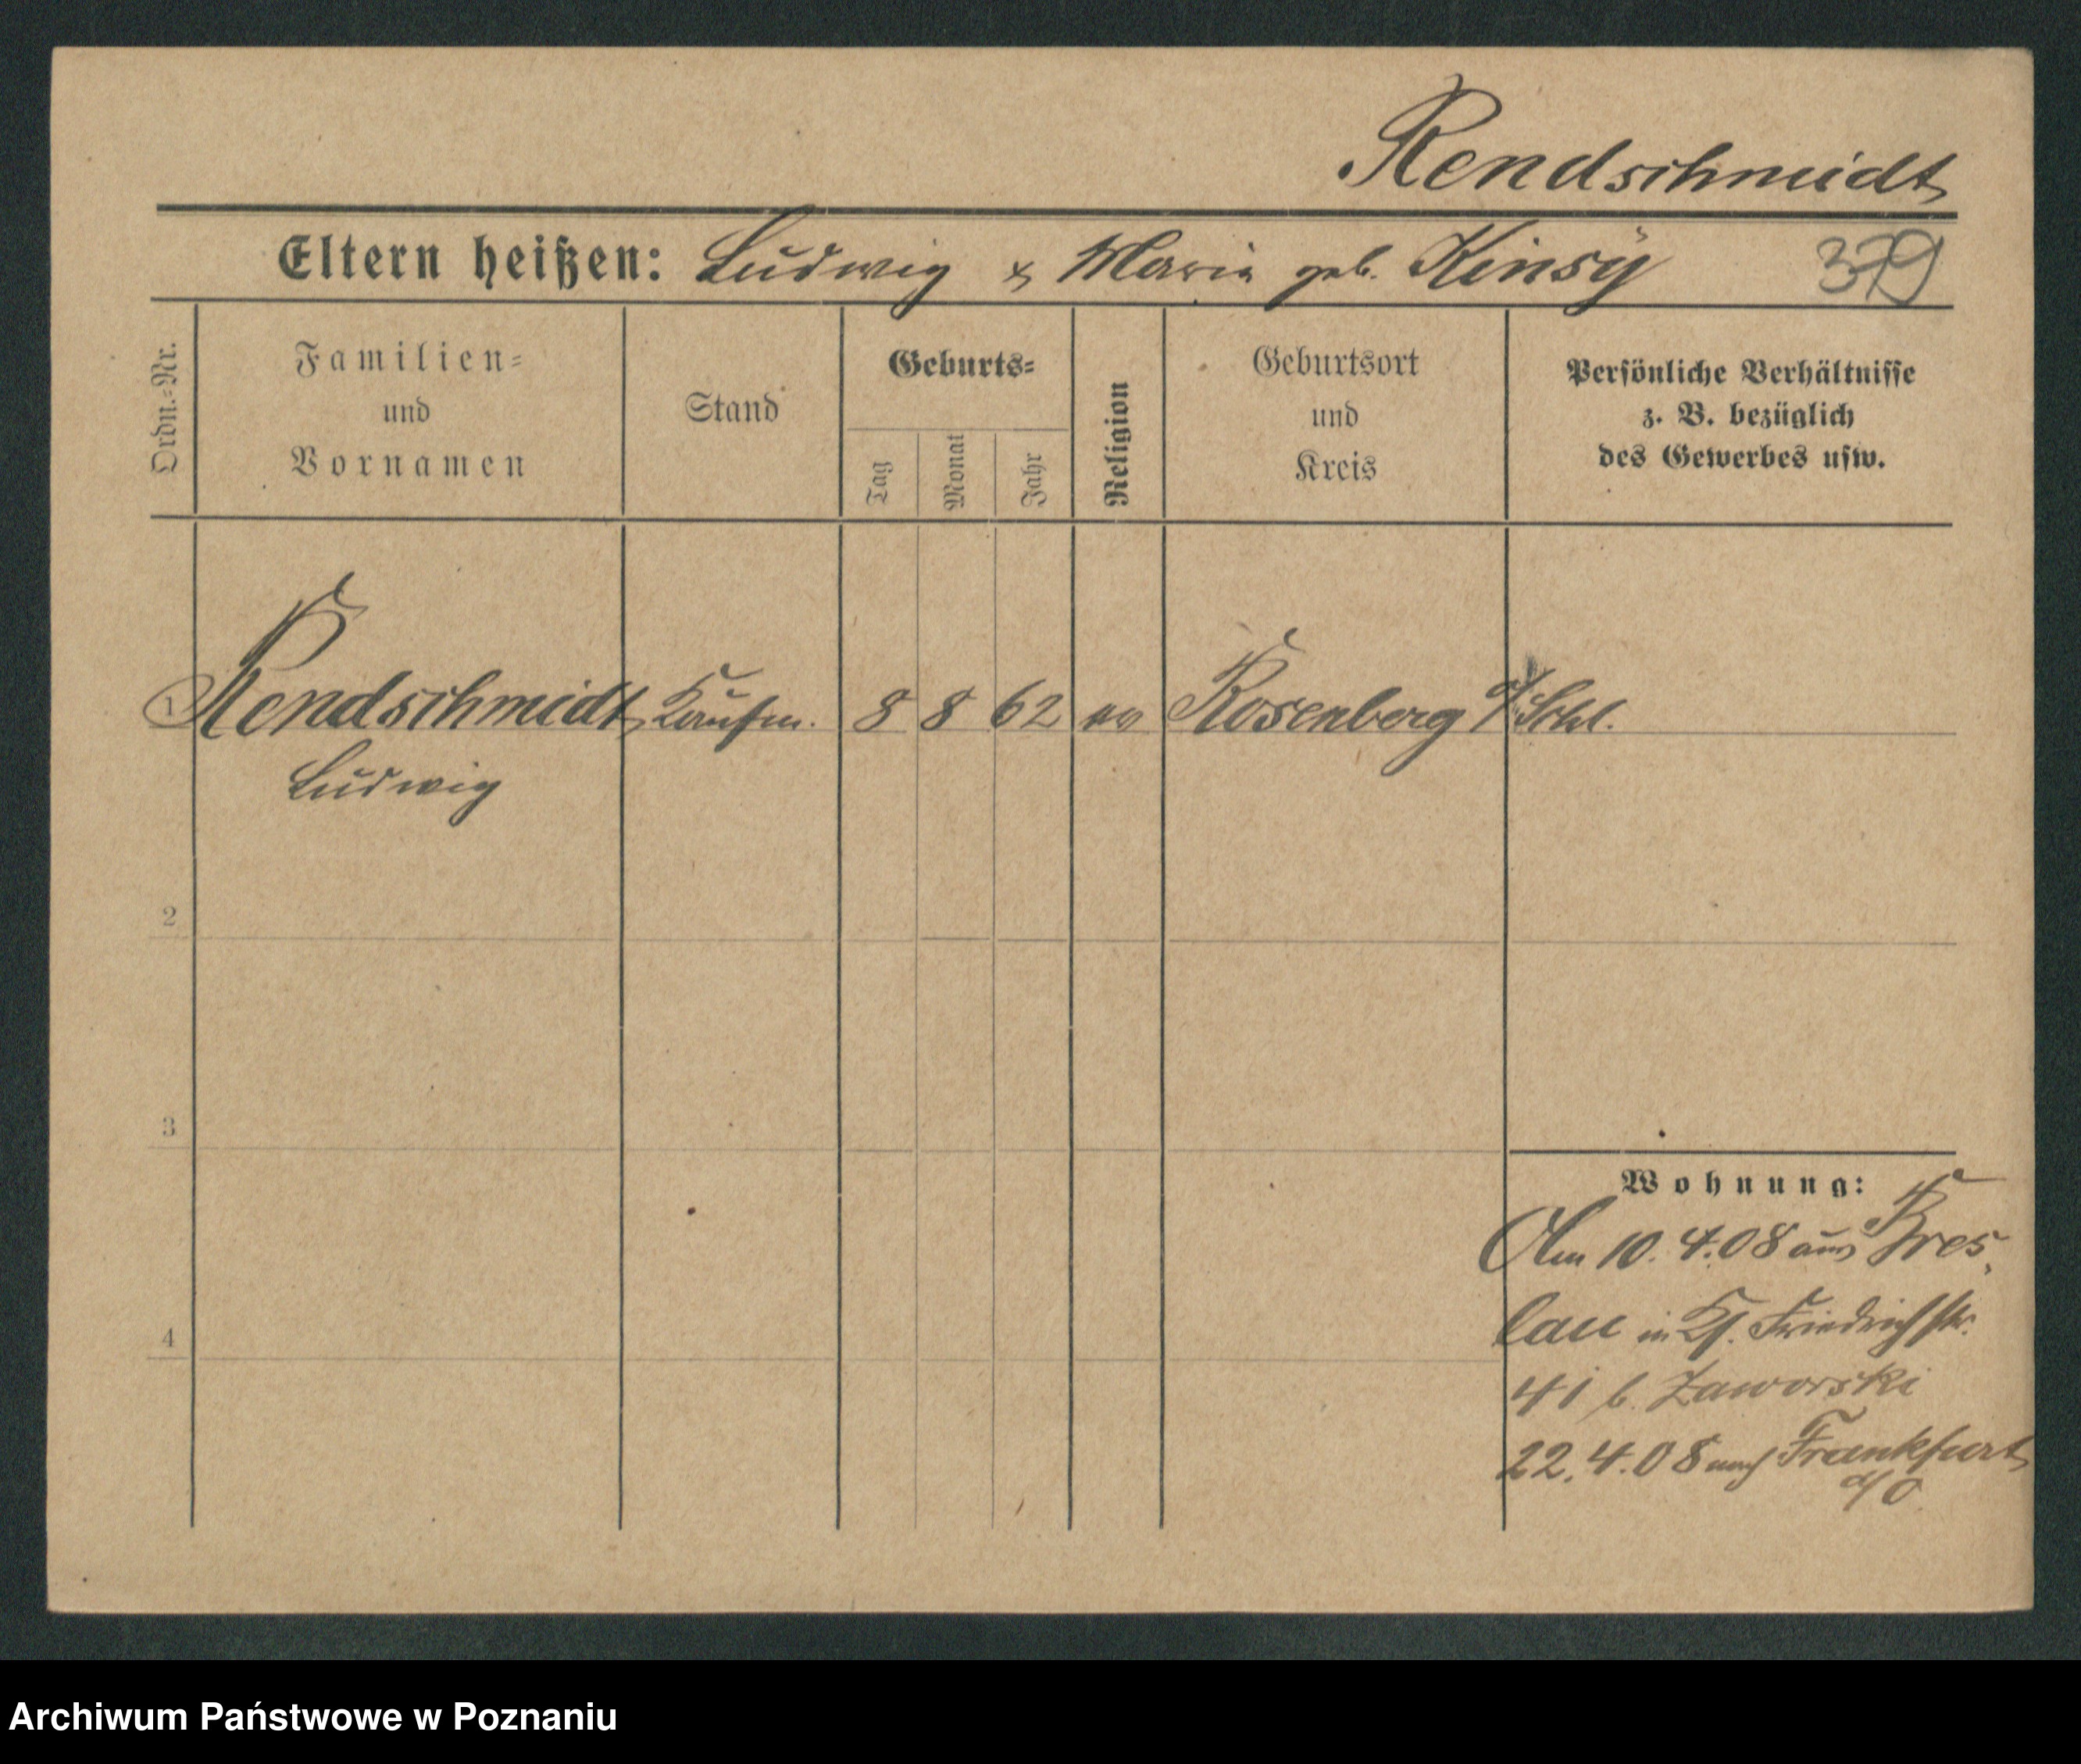 Rendschmidt
Eltern heißen: Ludwig & Maria geb. Kinsÿ 379
Ordn.-Nr.
Familien-
und
Vornamen
Stand
Geburts-
Tag
Monat
Jahr
Religion
Geburtsort
und
Kreis
Persönliche Verhältnisse
z. B. bezüglich
des Gewerbes usw.
1 Rendschmidt Kaufm. 8 8 62 ev Rosenberg O/Schl.
Ludwig
2
3
4
Wohnung:
Am 10.4.08 aus Bres-
lau in Friedrichstr.
41 b. Zaworski
22.4.08 nach Frankfurt
a/O
Archiwum Państwowe w Poznaniu